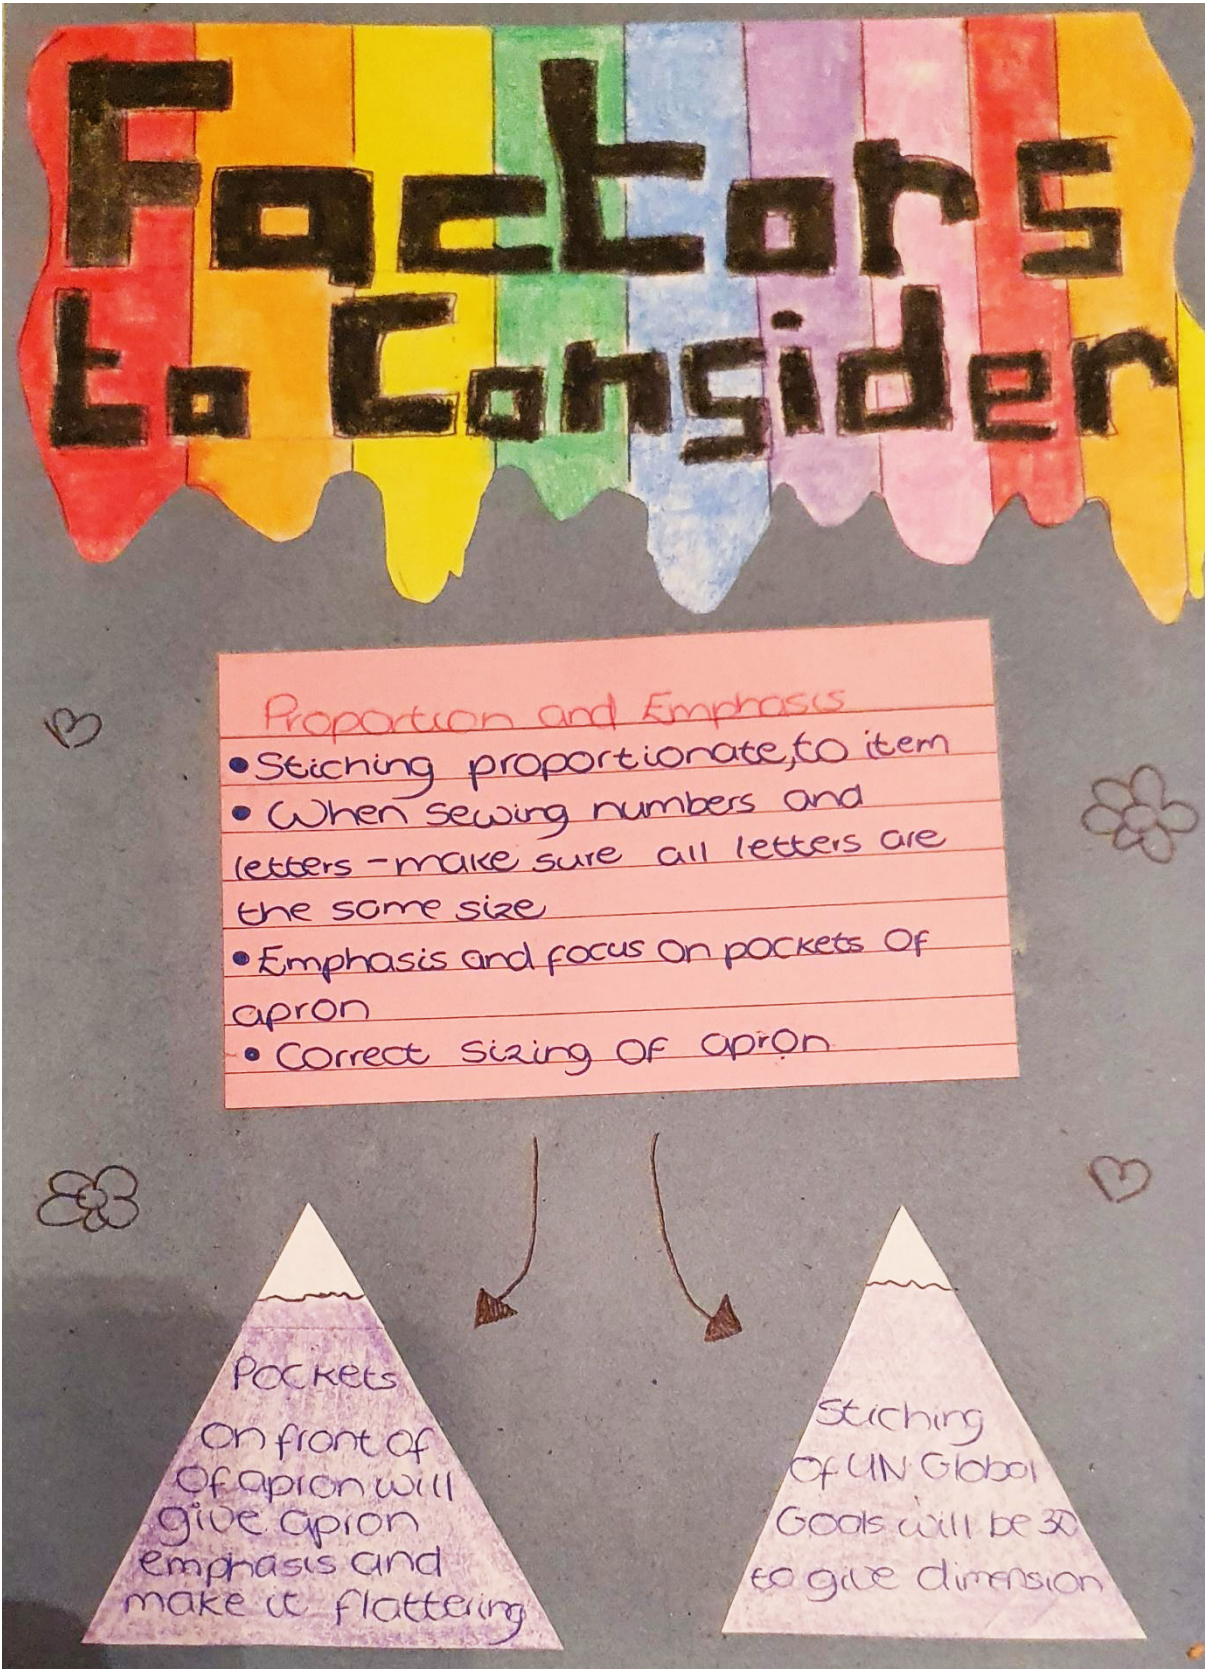 Factors
to Consider
Proportion and Emphasis
• Stiching proportionate, to item
• When sewing numbers and
letters - make sure all letters are
the same size
• Emphasis and focus on pockets of
apron
• Correct sizing of apron
Pockets
on front of
of apron will
give apron
emphasis and
make it flattering
Stiching
of UN Global
Goals will be 3D
to give dimension